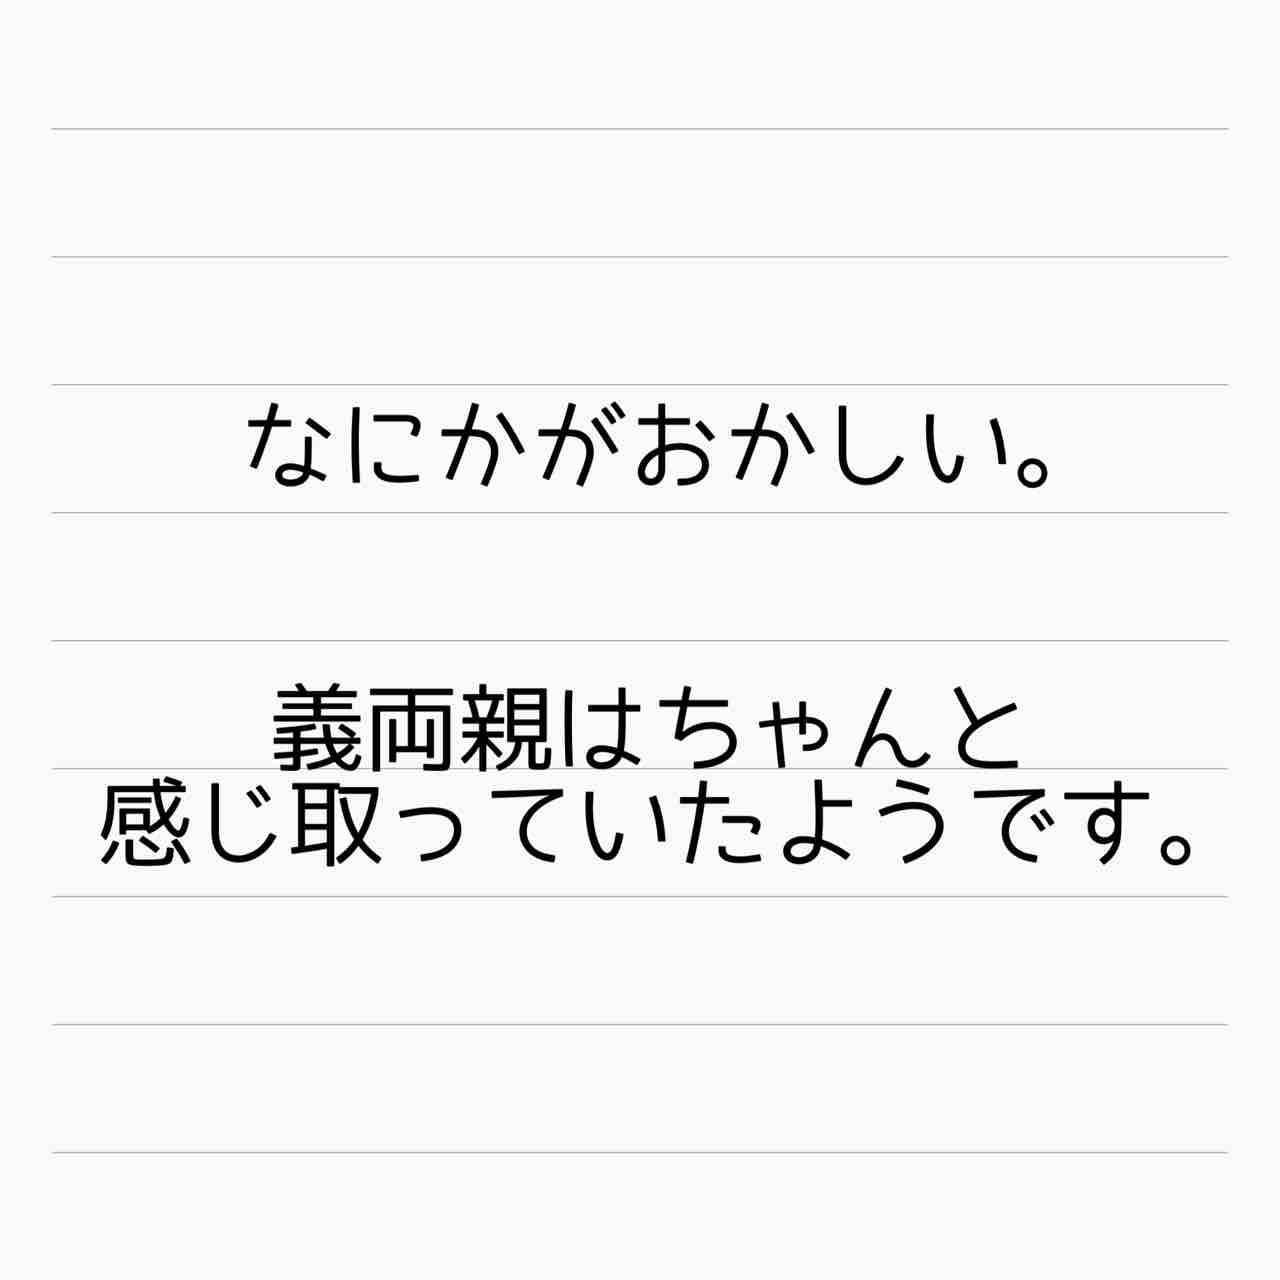 なにかがおかしい。
義両親はちゃんと
感じ取っていたようです。